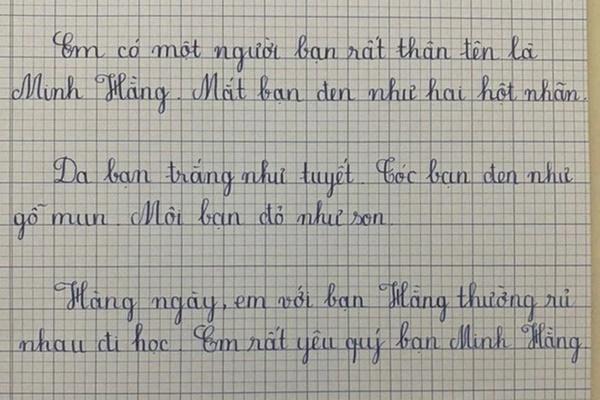 Em có một người bạn rất thân tên là
Minh Hằng. Mắt bạn đen như hai hột nhãn.
Da bạn trắng như tuyết. Tóc bạn đen như
gỗ mun. Môi bạn đỏ như son.
Hàng ngày, em với bạn Hằng thường rủ
nhau đi học. Em rất yêu quý bạn Minh Hằng